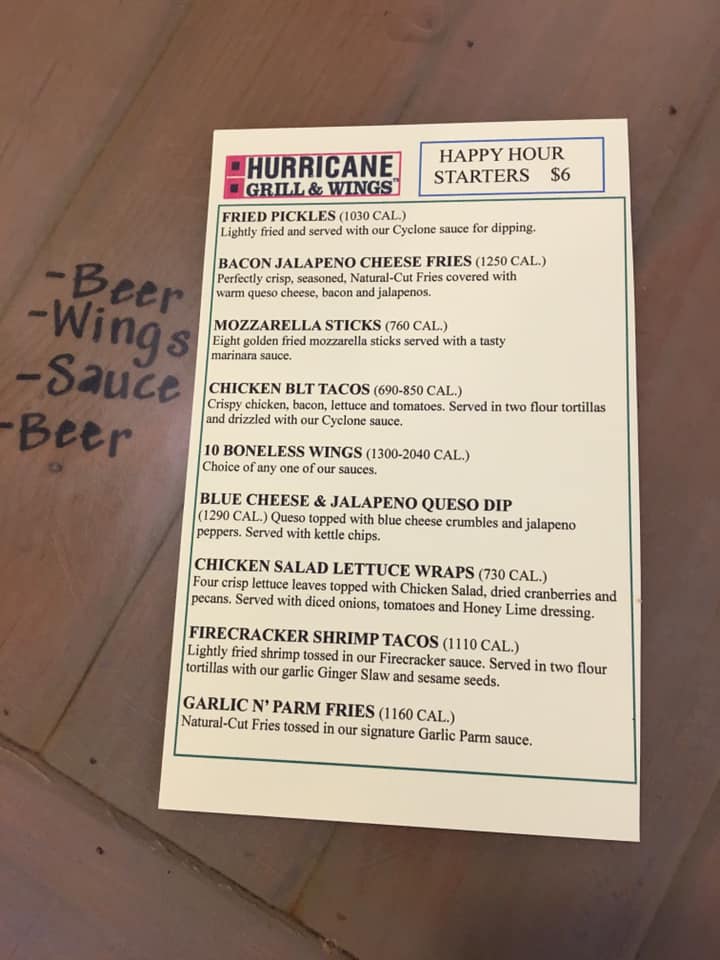 HURRICANE
GRILL & WINGS™
HAPPY HOUR
STARTERS $6
FRIED PICKLES (1030 CAL.)
Lightly fried and served with our Cyclone sauce for dipping.
BACON JALAPENO CHEESE FRIES (1250 CAL.)
Perfectly crisp, seasoned, Natural-Cut Fries covered with
warm queso cheese, bacon and jalapenos.
MOZZARELLA STICKS (760 CAL.)
Eight golden fried mozzarella sticks served with a tasty
marinara sauce.
CHICKEN BLT TACOS (690-850 CAL.)
Crispy chicken, bacon, lettuce and tomatoes. Served in two flour tortillas
and drizzled with our Cyclone sauce.
10 BONELESS WINGS (1300-2040 CAL.)
Choice of any one of our sauces.
BLUE CHEESE & JALAPENO QUESO DIP
(1290 CAL.) Queso topped with blue cheese crumbles and jalapeno
peppers. Served with kettle chips.
CHICKEN SALAD LETTUCE WRAPS (730 CAL.)
Four crisp lettuce leaves topped with Chicken Salad, dried cranberries and
pecans. Served with diced onions, tomatoes and Honey Lime dressing.
FIRECRACKER SHRIMP TACOS (1110 CAL.)
Lightly fried shrimp tossed in our Firecracker sauce. Served in two flour
tortillas with our garlic Ginger Slaw and sesame seeds.
GARLIC N' PARM FRIES (1160 CAL.)
Natural-Cut Fries tossed in our signature Garlic Parm sauce.
-Beer
-Wings
-Sauce
-Beer